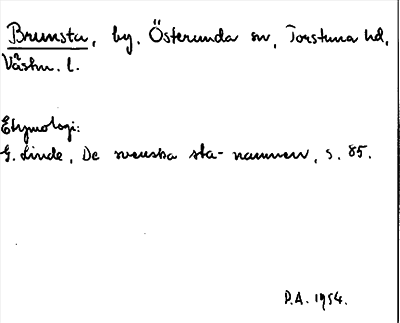 Brunsta, by. Österunda sn, Torstuna hd,
Västm. l.
Etymologi:
G. Linde, De svenska sta-namnen, s. 85.
D.A. 1954.